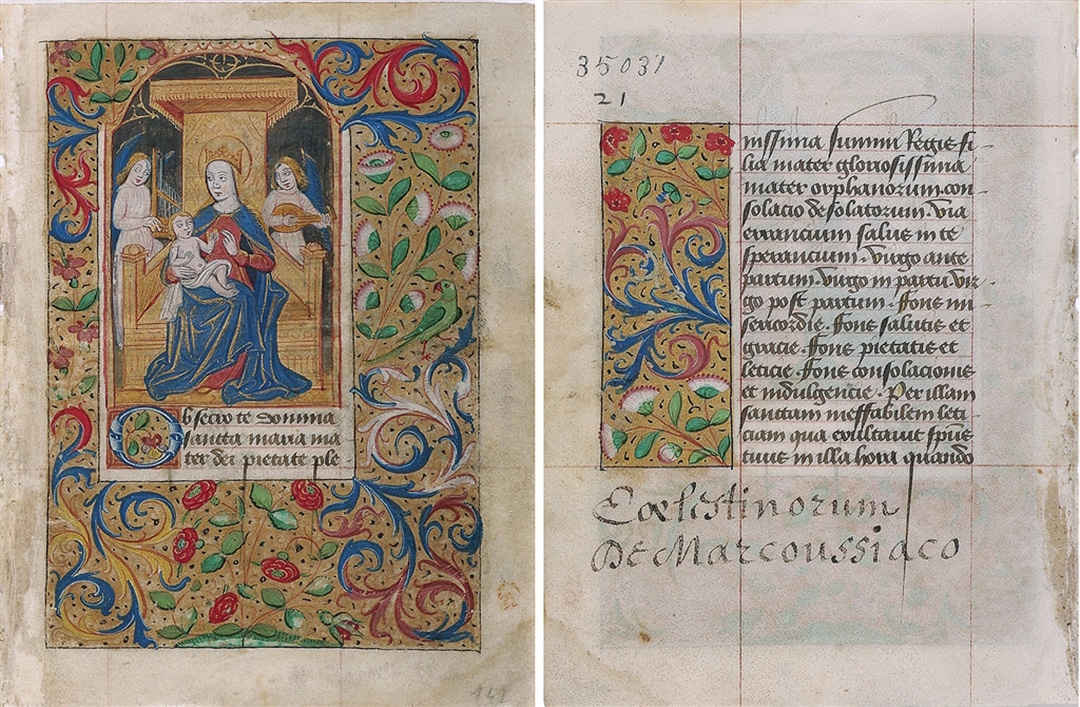 Obsecro te domina
sancta maria ma
ter dei pietate ple
142
35031
21
nissima summi Regis fi-
lia mater gloriosissima
mater orphanorum con-
solacio desolatorum. via
errancium salus in te
sperancium. virgo ante
partum. virgo in partu. vir-
go post partum. fons mi-
sericordie. fons salutis et
gracie. fons pietatis et
leticie. fons consolacionis
et indulgencie. Per illam
sanctam ineffabilem leti-
ciam qua exultauit spūs
tuus in illa hora quando
Cœlestinorum
De Marcoussiaco